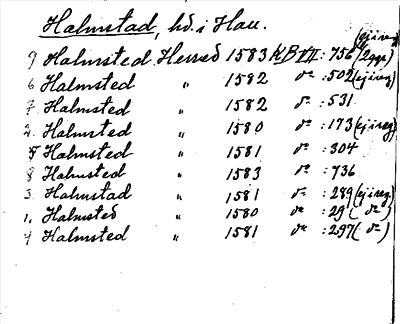 Halmstad, hd. i Hall.
(ej i reg
9 Halmsted Herred 1583 KB VIII : 756 (2ggr)
6 Halmsted " 1582 do : 502 (ej i reg)
7 Halmsted " 1582 do : 531
2. Halmsted " 1580 do : 173 (ej i reg)
5 Halmsted " 1581 do : 304
8 Halmsted " 1583 do : 736
3. Halmstad " 1581 do : 289 (ej i reg)
1. Halmsted " 1580 do : 29 ( do )
4 Halmsted " 1581 do : 297 ( do )